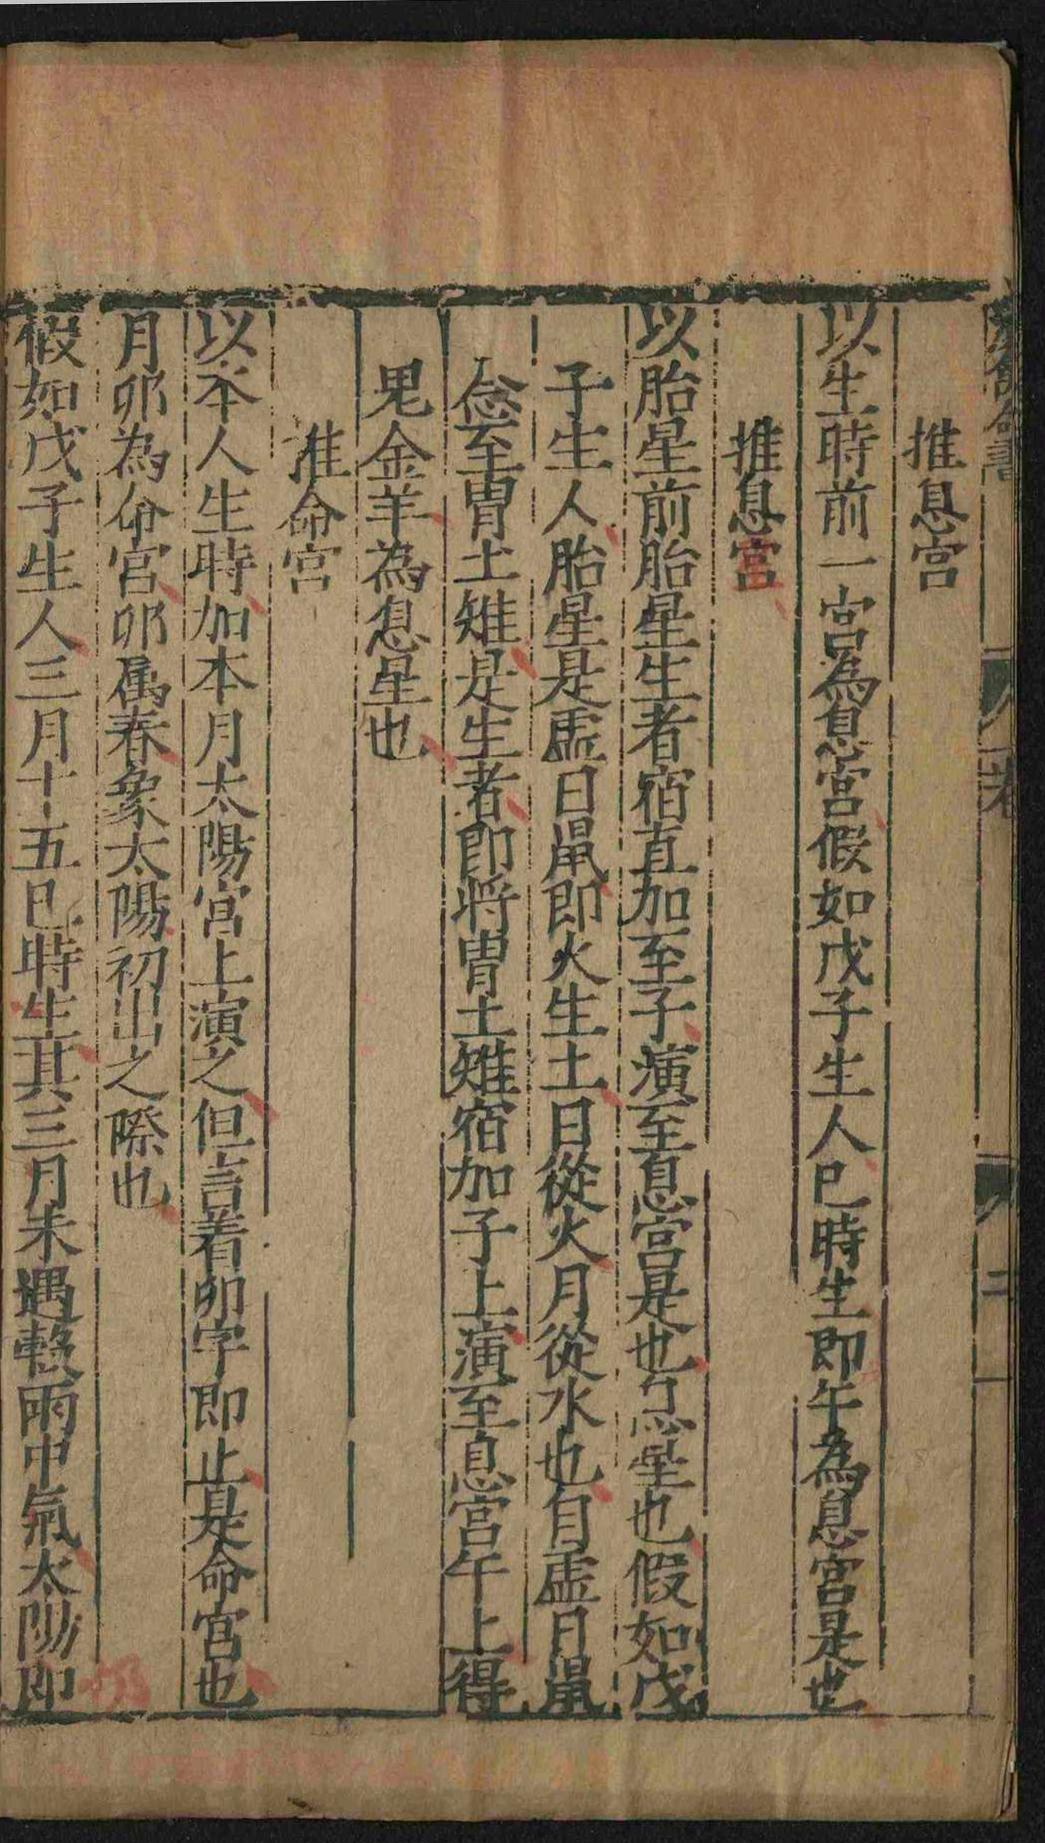 推息宮
以生時前一宮為息宮假如戊子生人巳時生即午為息宮是也
推息宮
以胎星前胎星生者宿直加至子演至息宮是也息星也假如戊
子生人胎星是虛日鼠即火生土日從火月從水也自虛日鼠
念至胃土雉是生者即将胃土雉宿加子上演至息宮午上得
鬼金羊為息星也
推命宮
以本人生時加本月太陽宮上演之但言着卯字即止是命宮也
月卯為命宮卯属春象太陽初出之際也
假如戊子生人三月十五巳時生其三月未遇穀雨中氣太陽即
卷
二